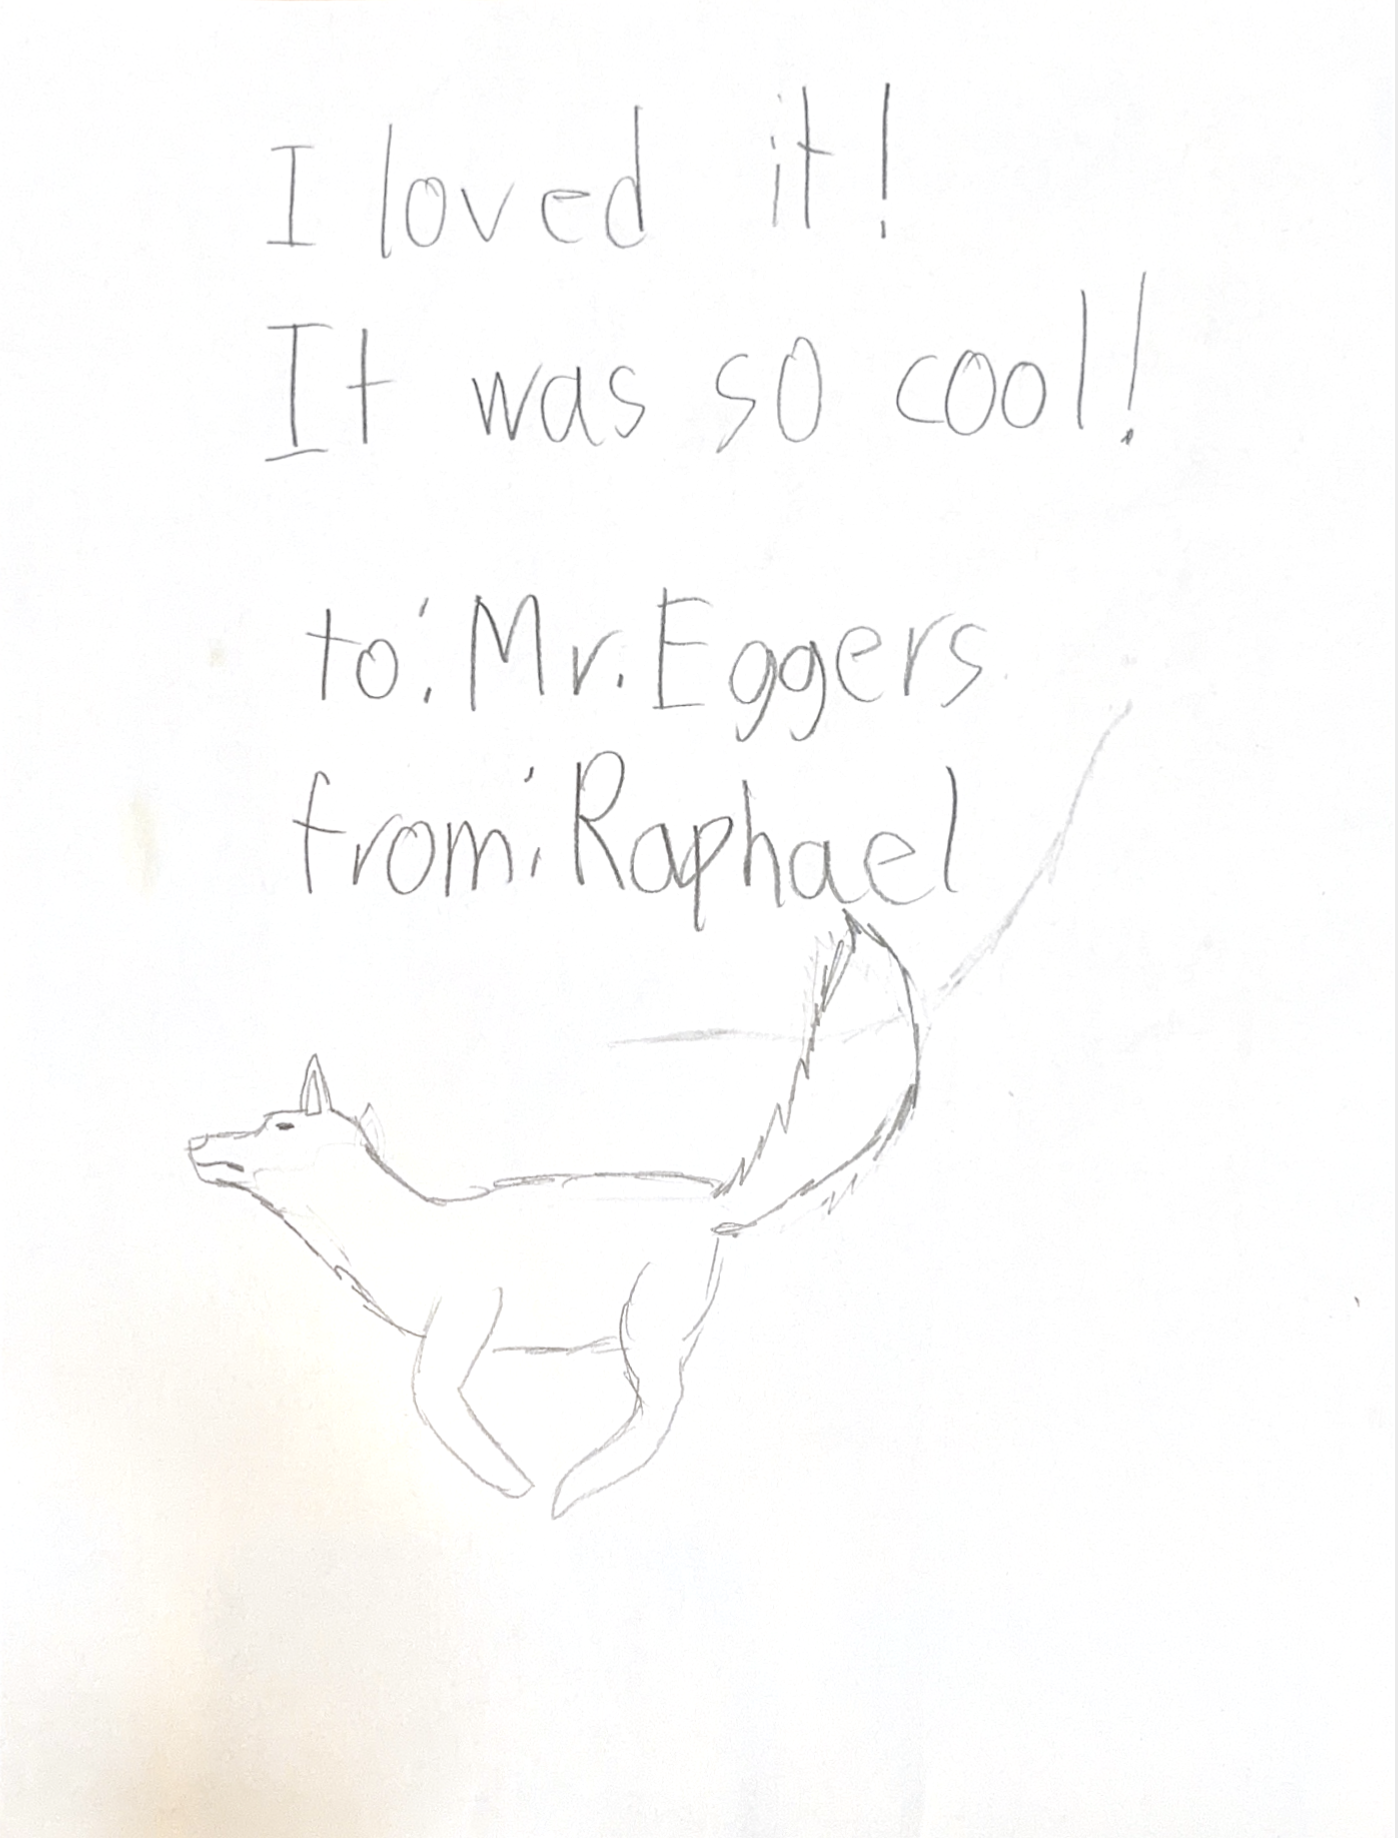 I loved it!
It was so cool!
to: Mr. Eggers
from: Raphael